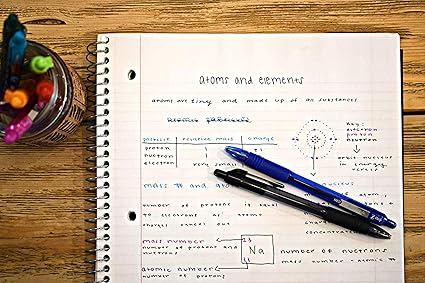 atoms and elements
atoms are tiny and made up of all substances
atomic particles
particle relative mass charge
proton 1 +1
neutron 1
electron very small
Key:
electron
proton
neutron
orbit nucleus
in energy
levels
mass # and
nucleus
number of protons is equal
to electrons atomic
charges cancel out
mass number
number of protons and
neutrons
23
Na
11
number of neutrons
mass number - atomic #
atomic number
number of protons